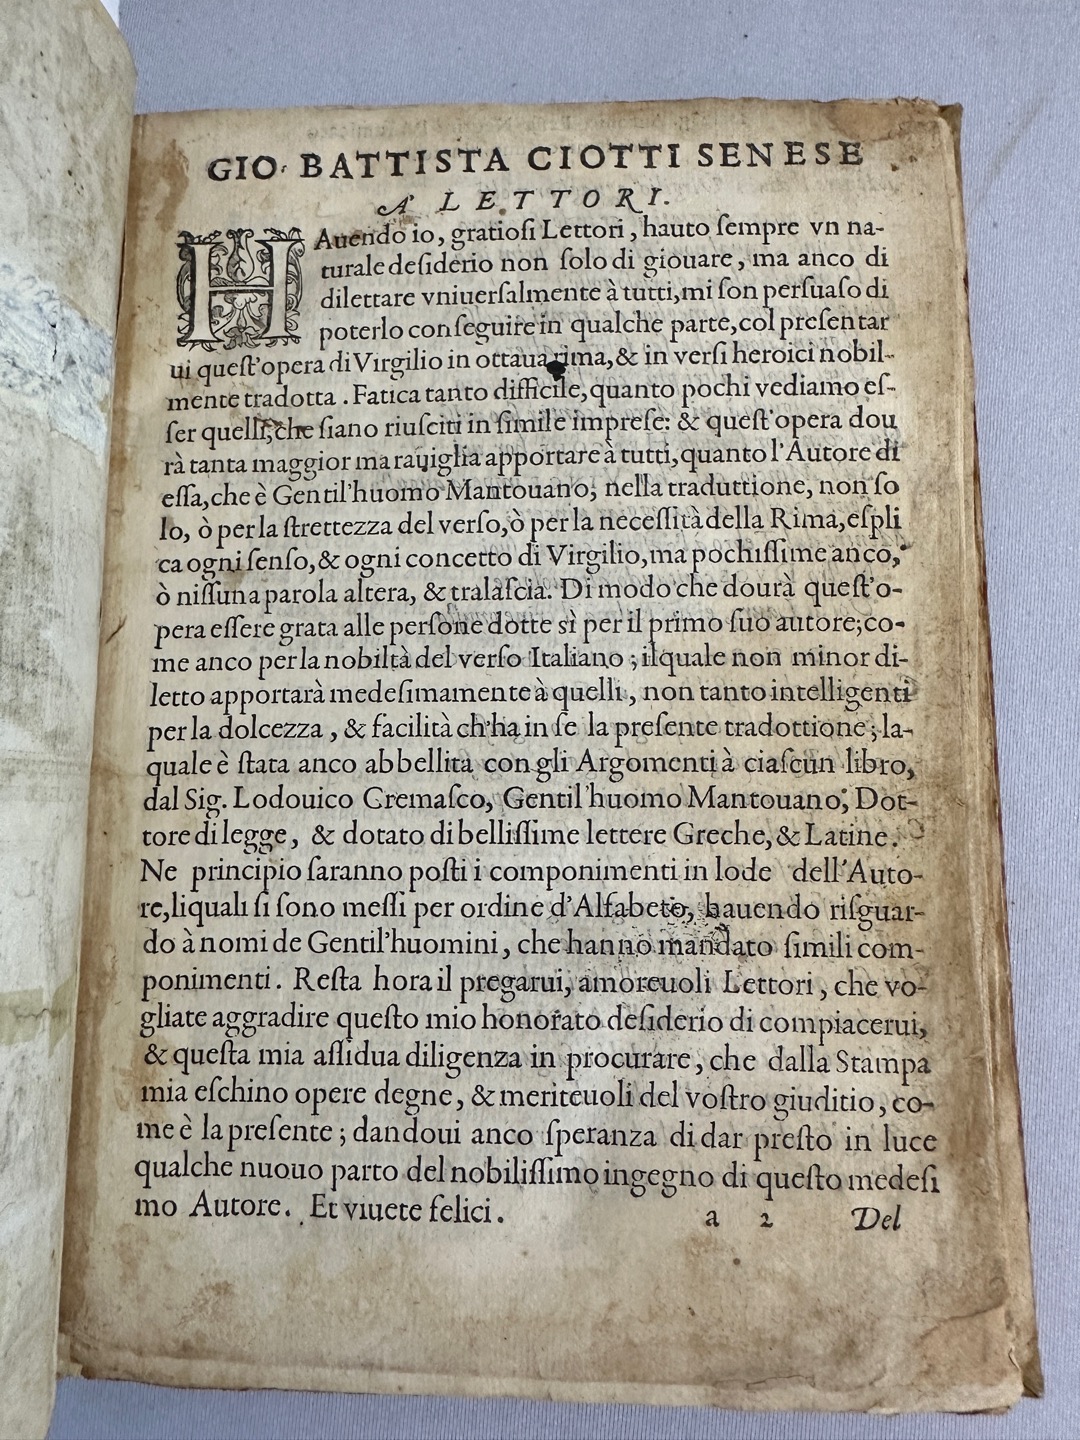 GIO. BATTISTA CIOTTI SENESE
A' LETTORI.
HAuendo io, gratioſi Lettori, hauto ſempre vn na-
turale deſiderio non ſolo di giouare, ma anco di
dilettare vniuerſalmente à tutti, mi ſon perſuaſo di
poterlo conſeguire in qualche parte, col preſentar
ui queſt'opera di Virgilio in ottaua rima, & in verſi heroici nobil-
mente tradotta. Fatica tanto difficile, quanto pochi vediamo eſ-
ſer quelli, che ſiano riuſciti in ſimile impreſe: & queſt'opera dou
rà tanta maggior marauiglia apportare à tutti, quanto l'Autore di
eſſa, che è Gentil'huomo Mantouano, nella traduttione, non ſo
lo, ò per la ſtrettezza del verſo, ò per la neceſſità della Rima, eſpli
ca ogni ſenſo, & ogni concetto di Virgilio, ma pochiſſime anco,
ò niſſuna parola altera, & tralaſcia. Di modo che dourà queſt'o-
pera eſſere grata alle perſone dotte sì per il primo ſuo autore; co-
me anco per la nobiltà del verſo Italiano; ilquale non minor di-
letto apportarà medeſimamente à quelli, non tanto intelligenti
per la dolcezza, & facilità ch'ha in ſe la preſente tradottione; la-
quale è ſtata anco abbellita con gli Argomenti à ciaſcun libro,
dal Sig. Lodouico Cremaſco, Gentil'huomo Mantouano, Dot-
tore di legge, & dotato di belliſſime lettere Greche, & Latine.
Ne principio ſaranno poſti i componimenti in lode dell'Auto-
re, liquali ſi ſono meſſi per ordine d'Alfabeto, hauendo riſguar-
do à nomi de Gentil'huomini, che hanno mandato ſimili com-
ponimenti. Reſta hora il pregarui, amoreuoli Lettori, che vo-
gliate aggradire queſto mio honorato deſiderio di compiacerui,
& queſta mia aſſidua diligenza in procurare, che dalla Stampa
mia eſchino opere degne, & meriteuoli del voſtro giuditio, co-
me è la preſente; dandoui anco ſperanza di dar preſto in luce
qualche nuouo parto del nobiliſſimo ingegno di queſto medeſi
mo Autore. Et viuete felici.
a 2 Del